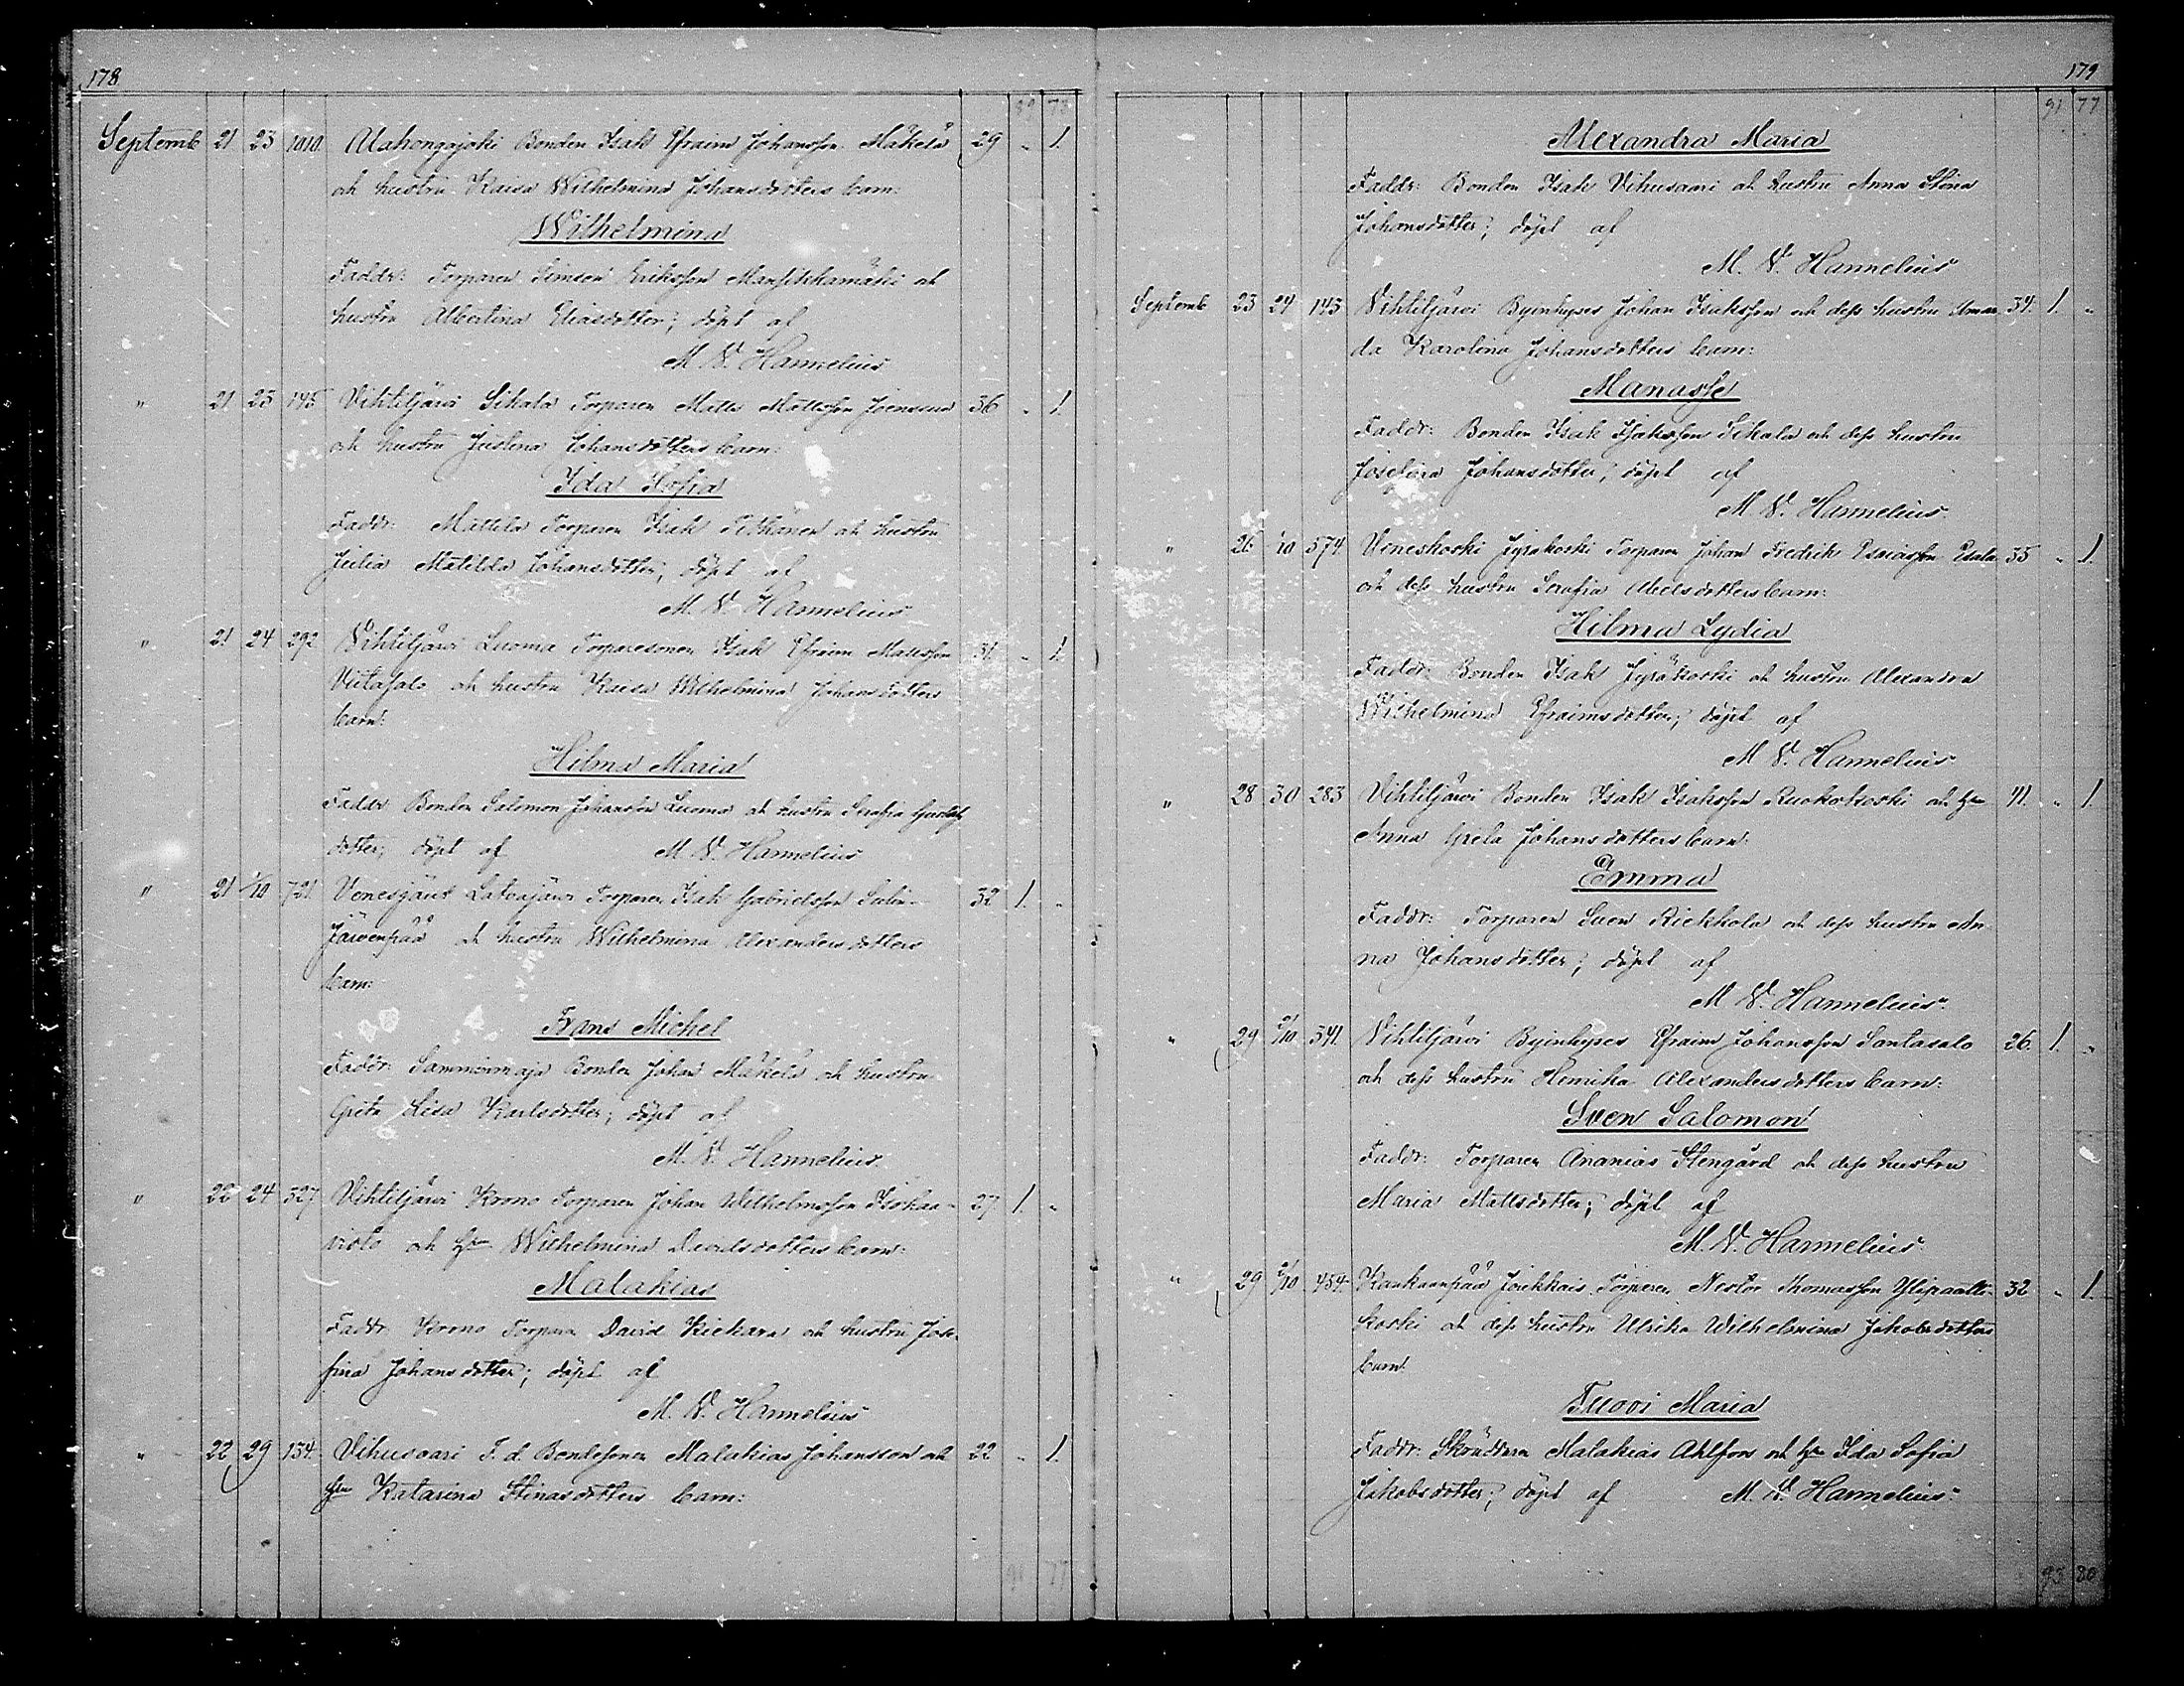 178
89 78
Septemb 21 23 1010. Alahongojoki Bonden Isak Efraim Johansson Mäkelä 29 „ 1.
och hustru Kaisa Wilhelmina Johansdotters barn:
Wilhelmina
Faddr: Torparen Simson Eriksson Mansikkamäki och
hustru Albertina Eliasdotter; döpt af
M. W. Hannelius
„ 21 23 145 Vihteljärvi Sikala Torparen Matts Mattsson Joensuu 36 „ 1.
och hustru Justina Johansdotters barn:
Ida Sofia
Faddr: Mattila Torparen Isak Pitkänen och hustru
Julia Matilda Johansdotter; döpt af
M. W. Hannelius
„ 21 24 292 Vihteljärvi Luoma Torparesonen Isak Efraim Mattsson 31. „ 1.
Viitasalo och hustru Kaisa Wilhelmina Johansdotters
barn:
Hilma Maria
Faddr Bonden Salomon Johansson Luoma och hustru Serafia
dotter; döpt af M. W. Hannelius
„ 21 1/10 721. Venesjärvi Latvajärvi Torparen Isak Gabrielsson 32 1. „
Järvenpää och hustru Wilhelmina Alexandersdotters
barn:
Frans Michel
Faddr: Samminmaja Bonden Johan Mäkelä och hustru
Greta Lisa Karlsdotter; döpt af
M. W. Hannelius.
„ 22 24 327 Vihteljärvi Krono Torparen Johan Wilhelmsson Isokaa- 27 1. „
violo och hu Wilhelmina Davidsdotters barn:
Malakias
Faddr Krono Torparen David Kiekara och hustru Jose-
fina Johansdotter; döpt af
M. W. Hannelius
„ 22 29 134. Vihusaari F. d. Bondesonen Malakias Johansson och 22 „ 1.
hu Katarina Stinasdotters barn:
91 77
179
91 77
Alexandra Maria
Faddr: Bonden Isak Vihusaari och hustru Anna Stina
Johansdotter; döpt af
M. W. Hannelius
Septemb 23 24 143 Vihteljärvi Byinhyses Johan Isaksson och dess hustru Aman- 34. 1. „
da Karolina Johansdotters barn:
Manasse
Faddr: Bonden Isak Isaksson Sikala och dess hustru
Josefina Johansdotter; döpt af
M. W. Hannelius.
„ 26 1/10 574. Veneskoski Jyräkoski Torparen Johan Fredrik Esaiasson Esala 35 „ 1.
och dess hustru Serafia Abelsdotters barn:
Hilma Lydia
Faddr: Bonden Isak Jyräkoski och hustru Alexandra
Wilhelmina Efraimsdotter; döpt af
M. W. Hannelius
„ 28 30 283 Vihteljärvi Bonden Isak Isaksson Ruokokoski och hu 41. „ 1.
Anna Greta Johansdotters barn:
Emma
Faddr: Torparen Sven Riekkola och dess hustru An-
na Johansdotter; döpt af
M. W. Hannelius.
„ 29 2/10 341. Vihteljärvi Byinhyses Efraim Johansson Santasalo 26. 1. „
och dess hustru Henrika Alexandersdotters barn:
Sven Salomon
Faddr: Torparen Ananias Stengård och dess hustru
Maria Mattsdotter; döpt af
M. W. Hannelius.
„ 29 2/10 454. Kankaanpää Joukkais Torparen Nestor Thomasson Ylipaatti- 32 „ 1.
koski och dess hustru Ulrika Wilhelmina Jakobsdotters
barn:
Tuovi Maria
Faddr: Skräddaren Malakias Ahlfors och hu Ida Sofia
Jakobsdotter; döpt af M. W. Hannelius.
93 80